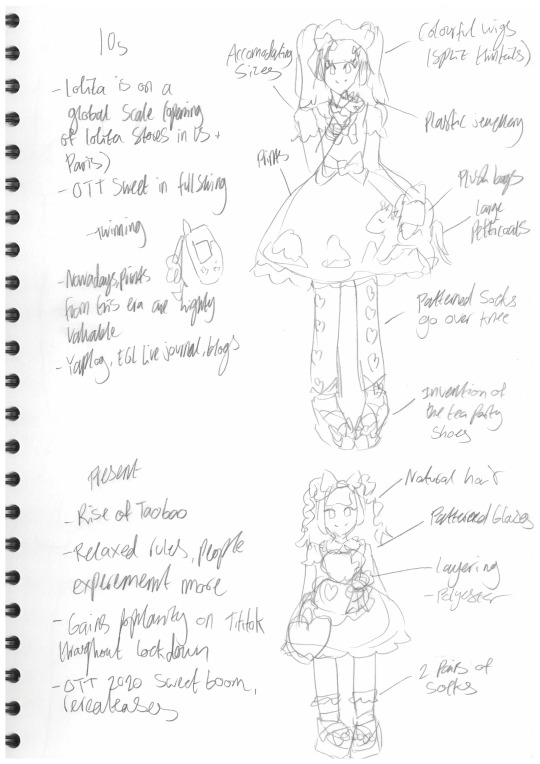 10s
- Lolita is on a
global scale (opening
of lolita stores in US +
Paris)
- OTT Sweet in full swing
- twinning
- Nowadays, prints
from this era are highly
valuable
- Yaplog, EGL Livejournal, blogs
Accomodating
sizes
Prints
Colourful wigs
(split
Plastic jewellery
Plush bags
Large
Petticoats
Patterned Socks
go over knee
Invention of
the tea party
shoes
Present
- Rise of Taobao
- Relaxed rules, people
more
- Gains popularity on Tiktok
lockdown
- OTT 2020 sweet boom,
Natural hair
Patterned
Layering
- Polyester
2 Pairs of
Socks